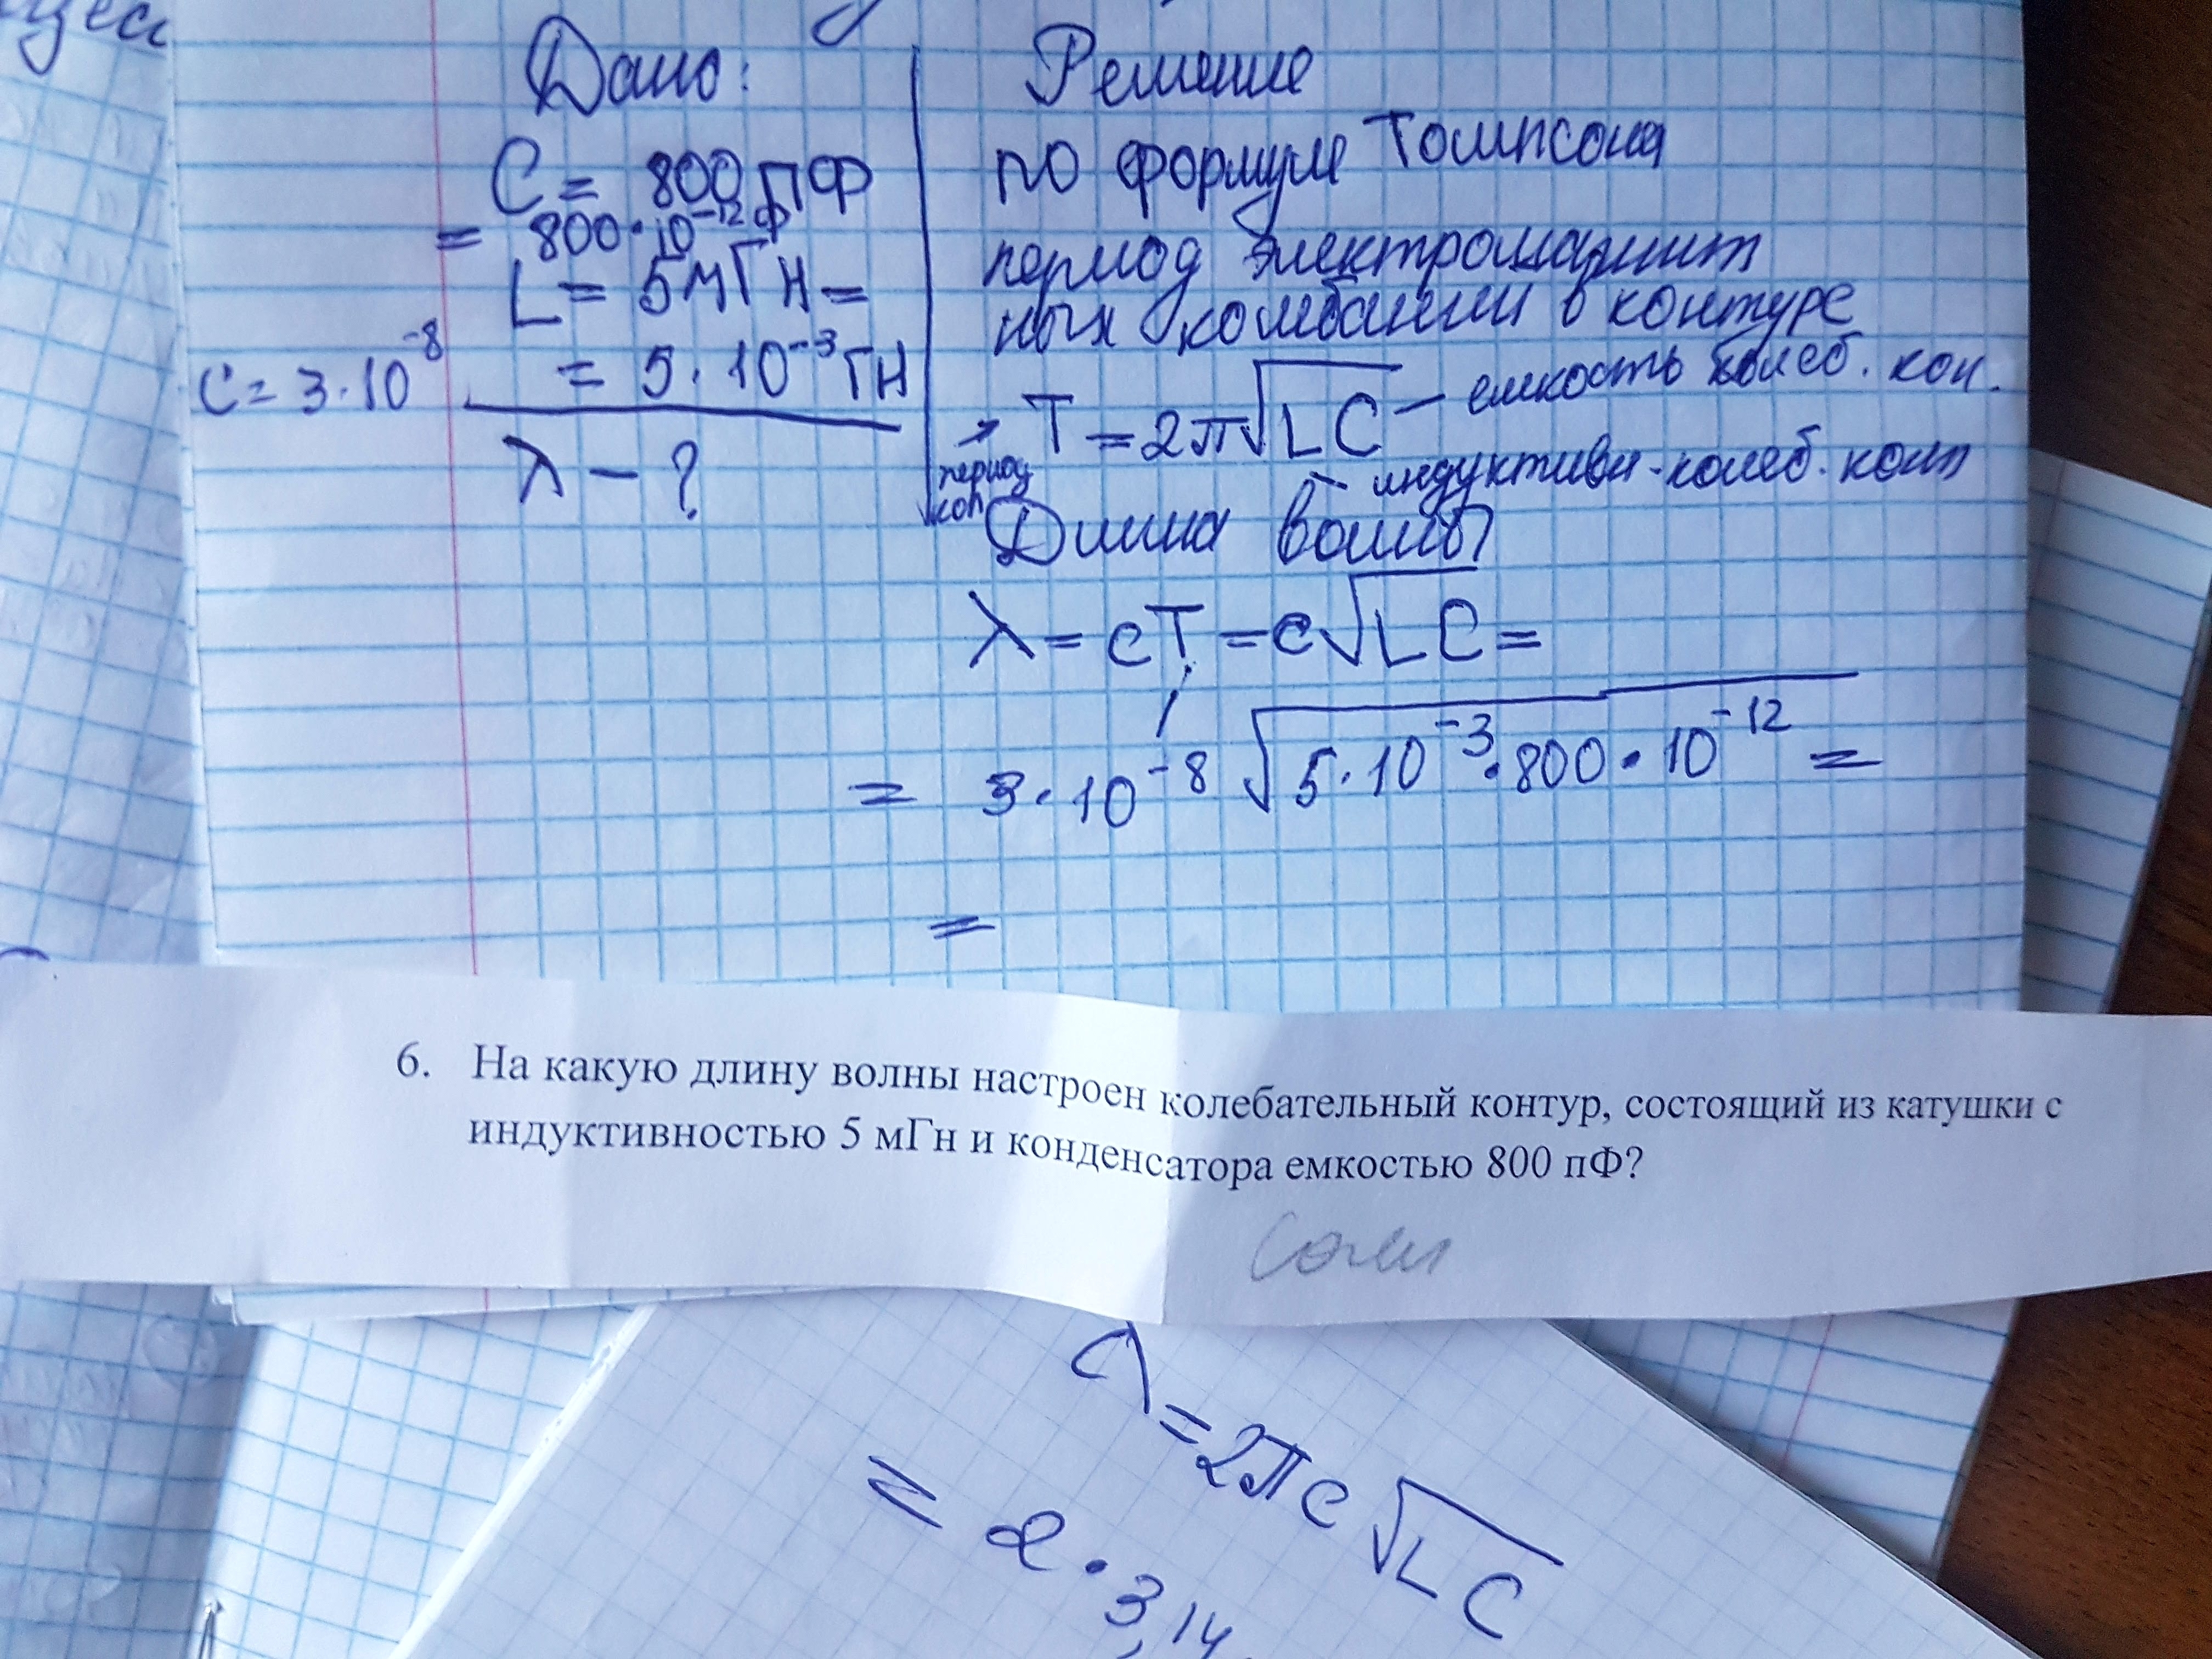 Дано:
Решение
C = 800 пФ
= 800·10⁻¹² Ф
L = 5 мГн =
= 5·10⁻³ Гн
c = 3·10⁻⁸
λ – ?
по формуле Томпсона
период электромагнит
ных колебании в контуре
→ T = 2π√LC — емкость колеб. кон.
период
кол
индуктивн-колеб. конт
Длина волны
λ = cT = c√LC =
= 3·10⁻⁸ √5·10⁻³·800·10⁻¹² =
=
6. На какую длину волны настроен колебательный контур, состоящий из катушки с
индуктивностью 5 мГн и конденсатора емкостью 800 пФ?
λ = 2πc√LC
= 2·3,14